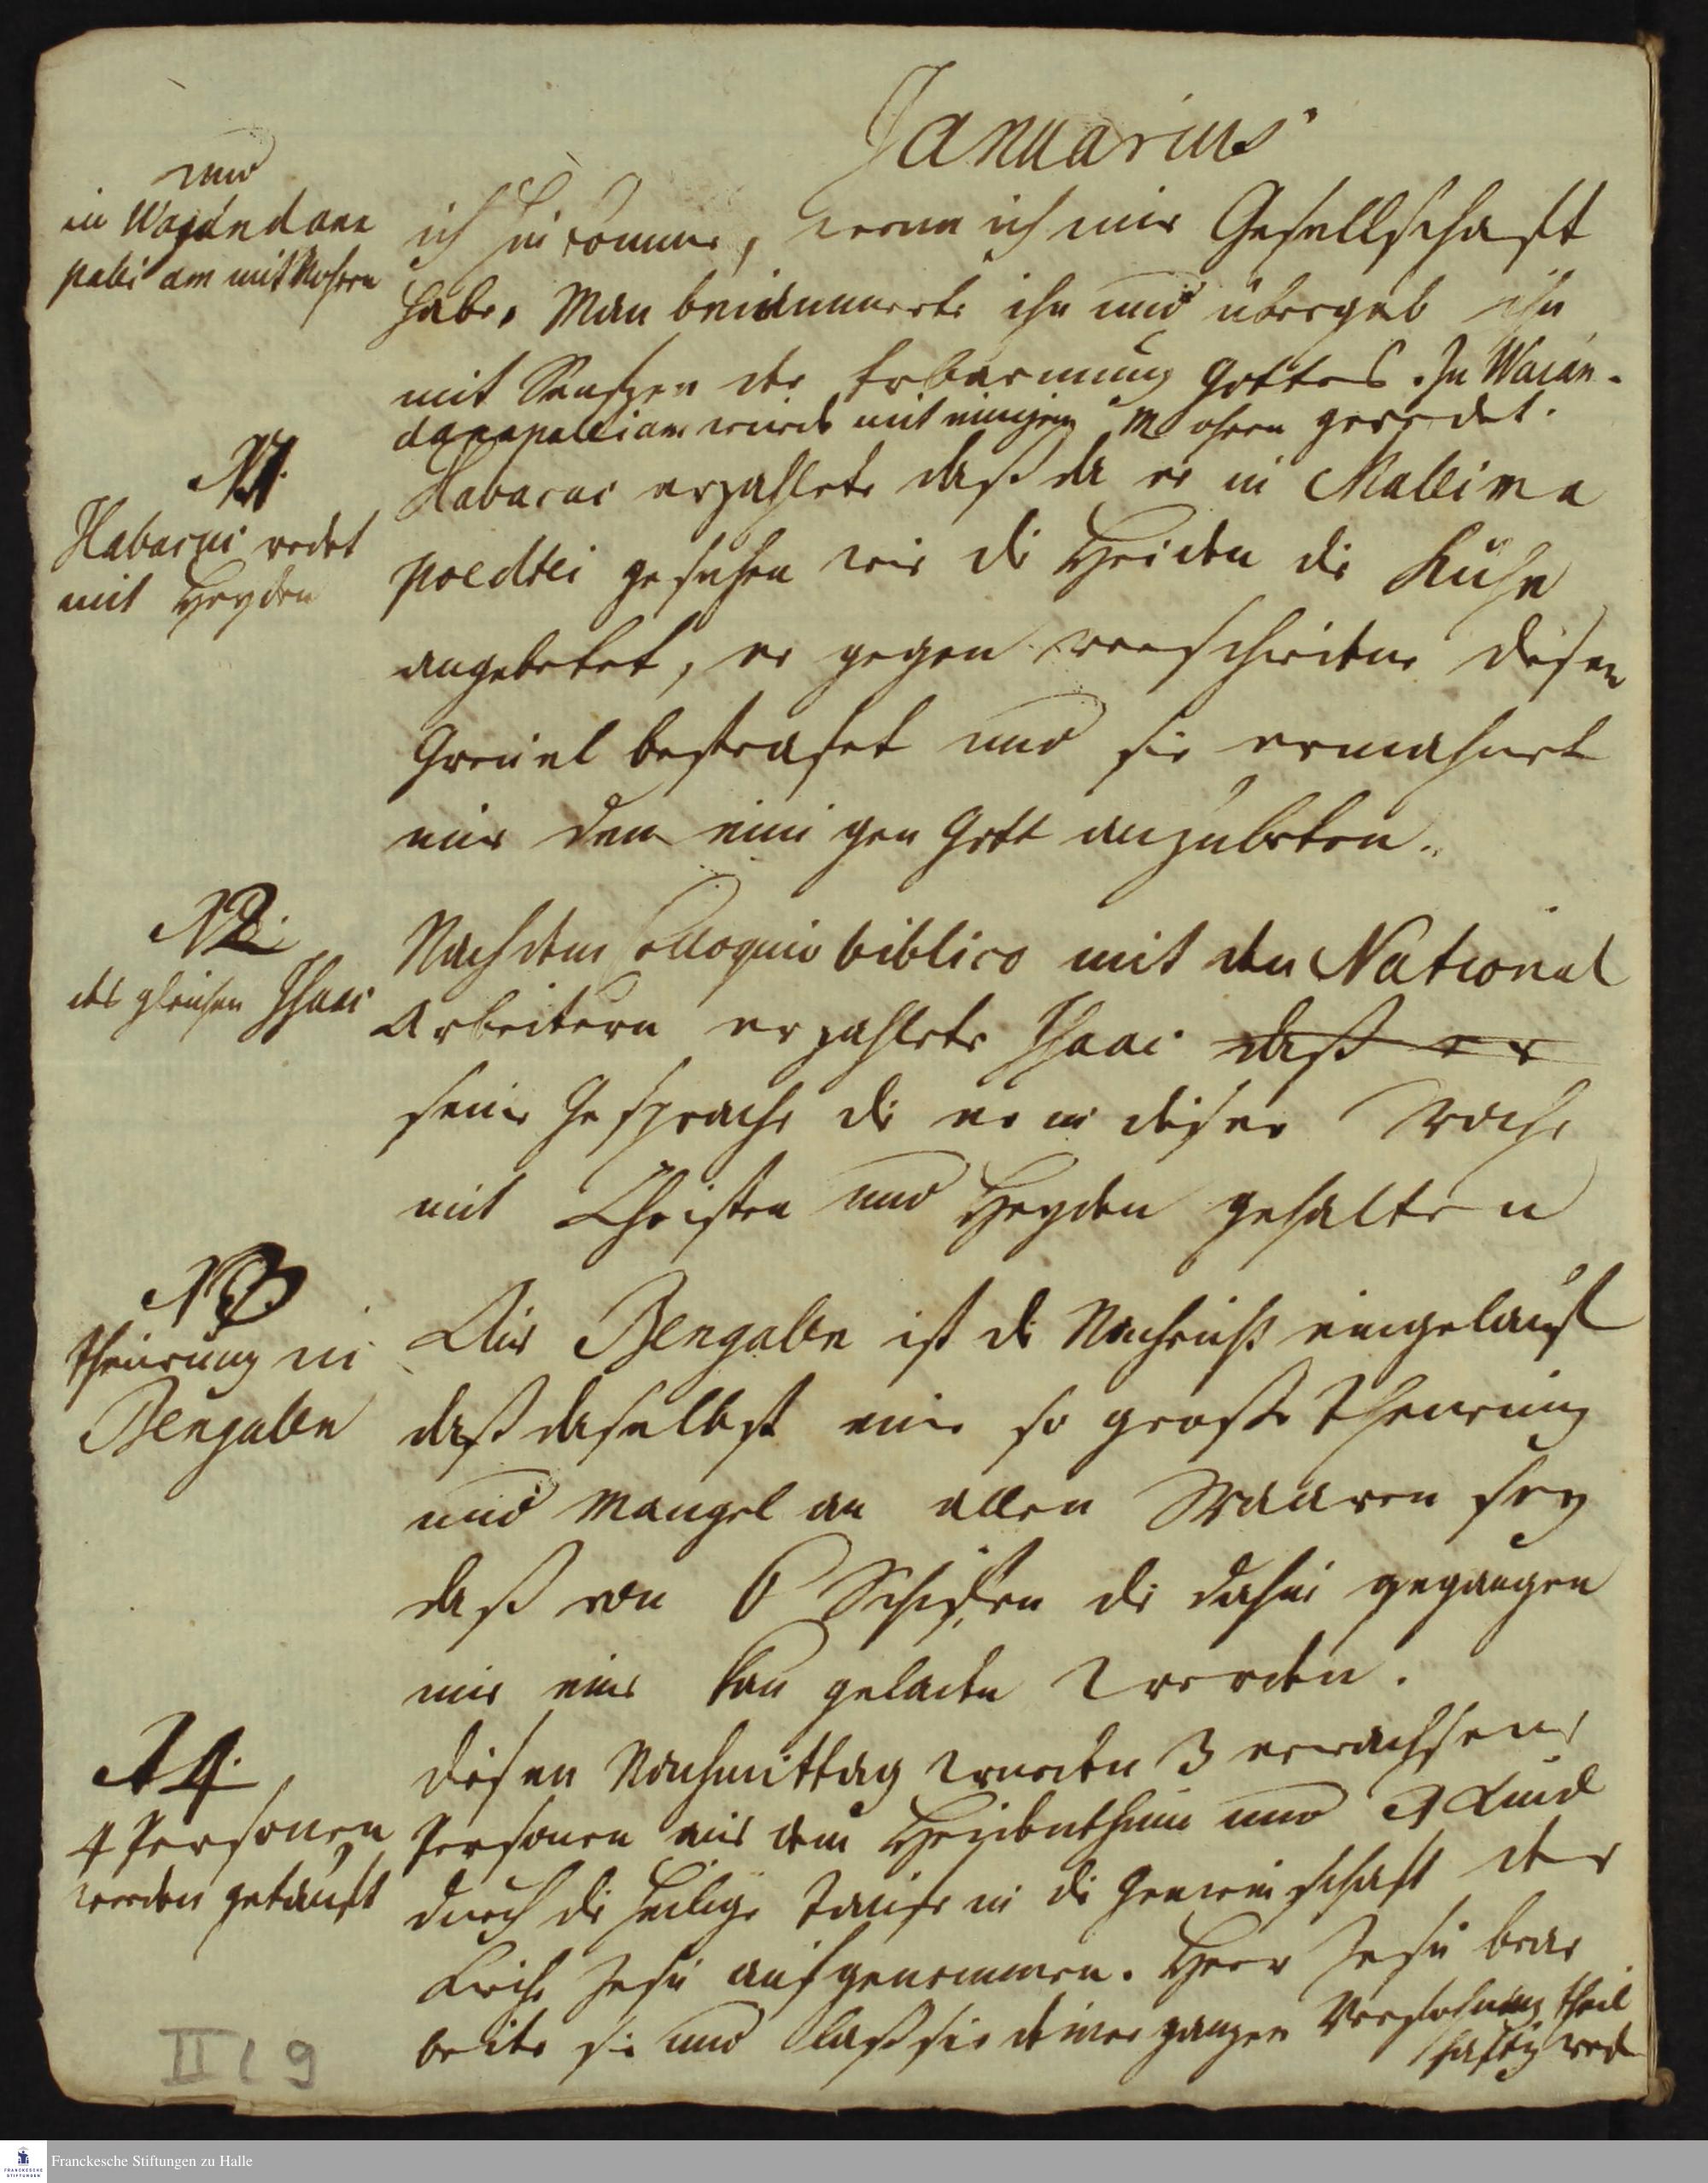 Januarius
und
in Wajandane
palli am mit Mohren
ich hinkomme, wenn ich nur Gesellschaft
habe. Man bejammerte ihn und übergab ihn
mit Seufzen der Erbarmung Gottes. In Wacan-
danapalliam wurde mit einigen Mohren geredet.
N 1.
Habacuc redet
mit Heyden
Habacuc erzahlete daß da er in Mallima
poedtei gesehen wie die Heiden die Kühe
angebetet, er gegen verschiedene diesen
Greuel bestrafet und sie ermahnet
nur den einigen Gott anzubeten.
N 2.
des gleichen Isaac
Nach dem Colloquio biblico mit den National
Arbeitern erzahlete Isaac daß er
seine Gesprache die er in dieser Woche
mit Christen und Heyden gehalten
N 3.
Theurung in
Bengalen
Aus Bengalen ist die Nachricht eingelauft
daß daselbst eine so große Theurung
und Mangel an allen Waaren sey
daß von 6 Schiffen die dahin gegangen
nur eins kan geladen werden.
N 4.
4 Personen
werden getauft
Diesen Nachmittag wurden 3 erwachsene
Personen aus dem Heidenthum und 1 Kind
durch die heilige Taufe in die Gemeinschaft der
Kirche Jesu aufgenommen. Herr Jesu bear
beite sie und laß sie deiner ganzen Versohnung theil
haftig werd
II C 9
Franckesche Stiftungen zu Halle